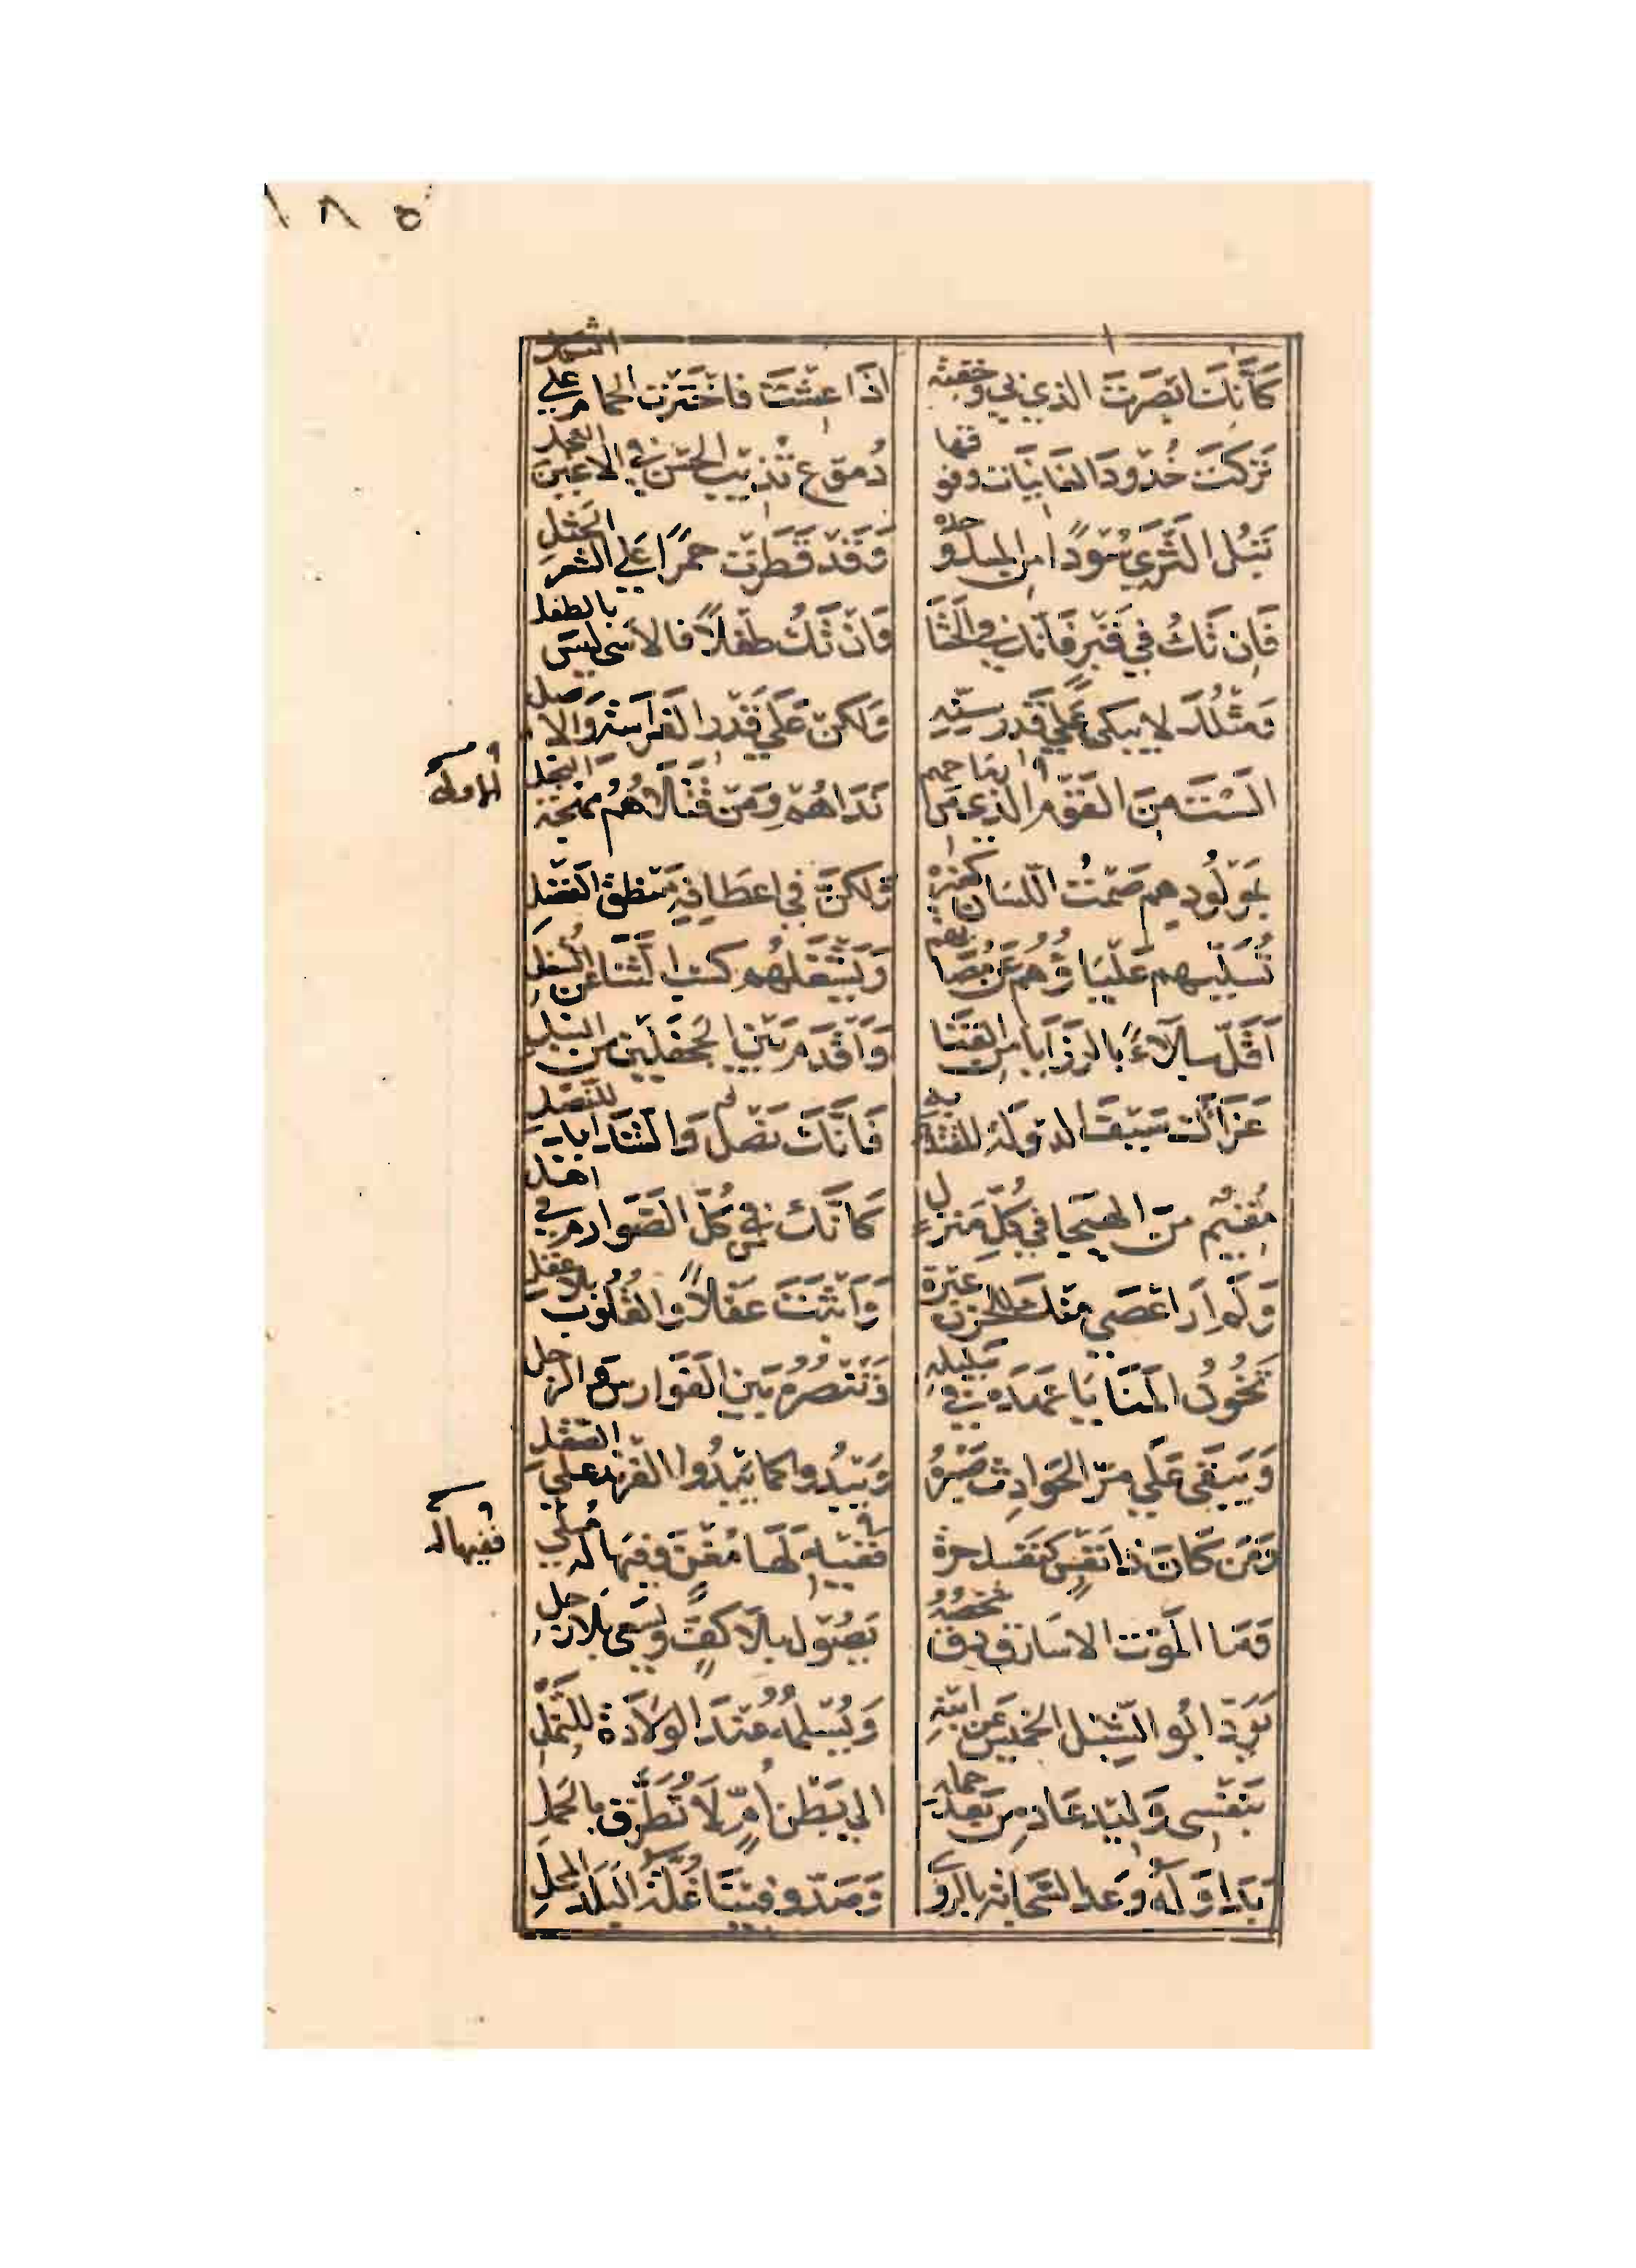 ١٨٥
كَأَنَّكَ أَبْصَرْتَ الذي بي وخفته اذَا عِشْتَ فَاخْتَرْتَ الحمام على الثكل
تَرَكْتَ خُدُودَ الغَانِيَاتِ وفوقها دُمُوع تُذِيبُ الحُسْنَ في الاعين النجل
تَبُلُّ الثَّرَى سُودًا من المسك وحده وَقَدْ قَطَرَتْ حُمْرًا عَلَى الشعر الجثل
فَإِن تَكُ فِي قَبْرٍ فَإِنَّكَ في الحَشَا وَانْ تَكُ طِفْلًا فَالأَسَى لَيْسَ بالطفل
وَمِثْلُكَ لا يبكى عَلَى قَدْرِ سِنِّهِ وَلَكِنْ عَلَى قَدْرِ الفَرَاسَة وَالاصل
أَلَسْتَ مِنَ القَوْمِ الذي من رماحهم نَدَاهُمْ وَمَنْ قَتْلَاهُمُ مهجة البخل
الاولى
بِمَوْلُودِهِمْ صَمْتُ اللّسَانِ كغيره وَلَكِنَّ في اعطافه مَنْطِقَ الفَضْلِ
تُسَلِّيهِم عَلْيَاؤُهُم عَنْ مُصَابهم وَيَشْغَلُهُم كسب الثَّنَاءِ عَنِ الشغل
أَقَلُّ بِلَاءً بالرَّزَايَا من القَنَا وَأَقْدَمُ بَيْنَ الجَحْفَلَيْنِ مِنَ النبل
عَزَاءَكَ سَيْفَ الدَّوْلَةِ المقتدى به فَإِنَّكَ نَصْل وَالشَّدَايد للنصل
مُقِيم مِنَ الهَيْجَا في كُلِّ مَنْزِل كَأَنَّكَ في كُلِّ الصَّوَارِم في اهل
وَلَم أَرَ أَعْصَى مِنْكَ للحُزْن عَبْرَة وَأَثْبَتَ عَقْلًا وَالقُلُوب بلا عقل
تَخُونُ المَنَايَا عَهْدَهُ في سَلِيلِهِ وَتَنْصُرُهُ بَيْنَ الفَوَارِس والرجل
وَيَبْقَى عَلَى مَرِّ الحَوَادِثِ صَبْرُهُ وَيَبْدُوا كما يَبْدُوا الفِرِنْد على الصقل
وَمَن كَانَ ذَا نَفْسٍ كَنَفْسِكَ حرة فَفِيهِ لَهَا مُغْنٍ وفيها له مُسْلِي
ففيها له
وَمَا المَوْت الا سَارِق دق شخصه يَصُولُ بِلَا كَفٍّ وَيَسْعَى بلا رجل
يَرُدُّ أَبُو الشِّبْل الخَمِيسَ عَن ابنه وَيُسْلِمُهُ عِنْدَ الوِلَادَة للنَّمْلِ
بِنَفْسِي وَلِيد عَادَ مِنْ بَعْدِ حمله إلى بَطْنِ أُمٍّ لَا تُطَرِّق بالحمل
بَدَا وَلَهُ وَعْد السَّحَابَة بِالرَّوى وَصَدَّ وفينَا غُلَّة البَلَد المحل